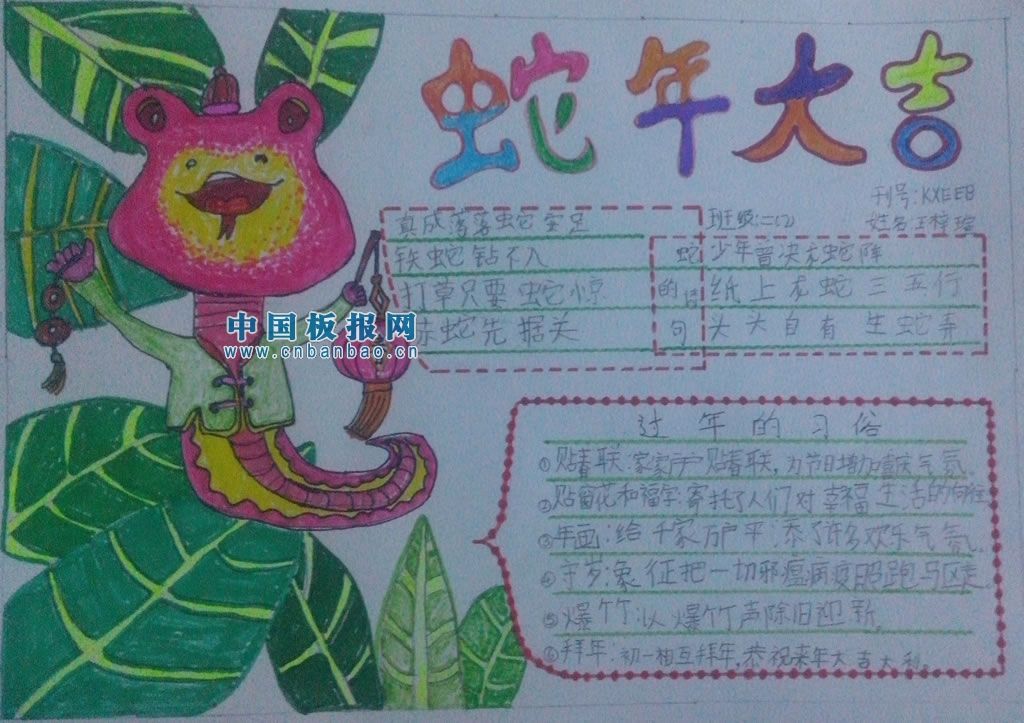 蛇年大吉
刊号:KXEEB
班级:二(2)
姓名:王梓
真成落落蛇安足
铁蛇钻不入
打草只要蛇惊
赤蛇先据关
蛇的诗句
少年曾决赤蛇阵
纸上龙蛇三五行
头头自有生蛇弄
中国板报网
www.cnbanbao.cn
过年的习俗
①贴春联:家家户户贴春联,为节日增加喜庆气氛
②贴窗花和福字:寄托了人们对幸福生活的向往
③年画:给千家万户平添了许多欢乐气氛
④守岁:象征把一切邪瘟病疫照跑马区走
⑤爆竹:以爆竹声除旧迎新.
⑥拜年:初一相互拜年,恭祝来年大吉大利。